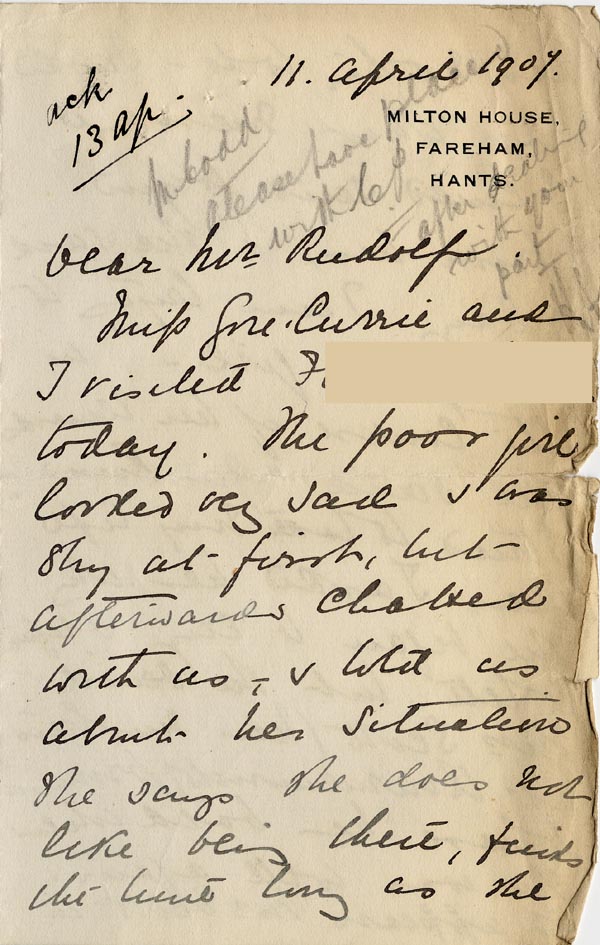 11. April 1907.
ack
13 ap.
MILTON HOUSE,
FAREHAM,
HANTS.
please have place
with
after dealing
with your
part
Dear Mr. Rudolf.
Miss Gore-Currie and
I visited F
today. The poor girl
looked very sad & was
shy at first, but
afterwards chatted
with us, & told us
about her situation
She says she does not
like being there, finds
the time long as she